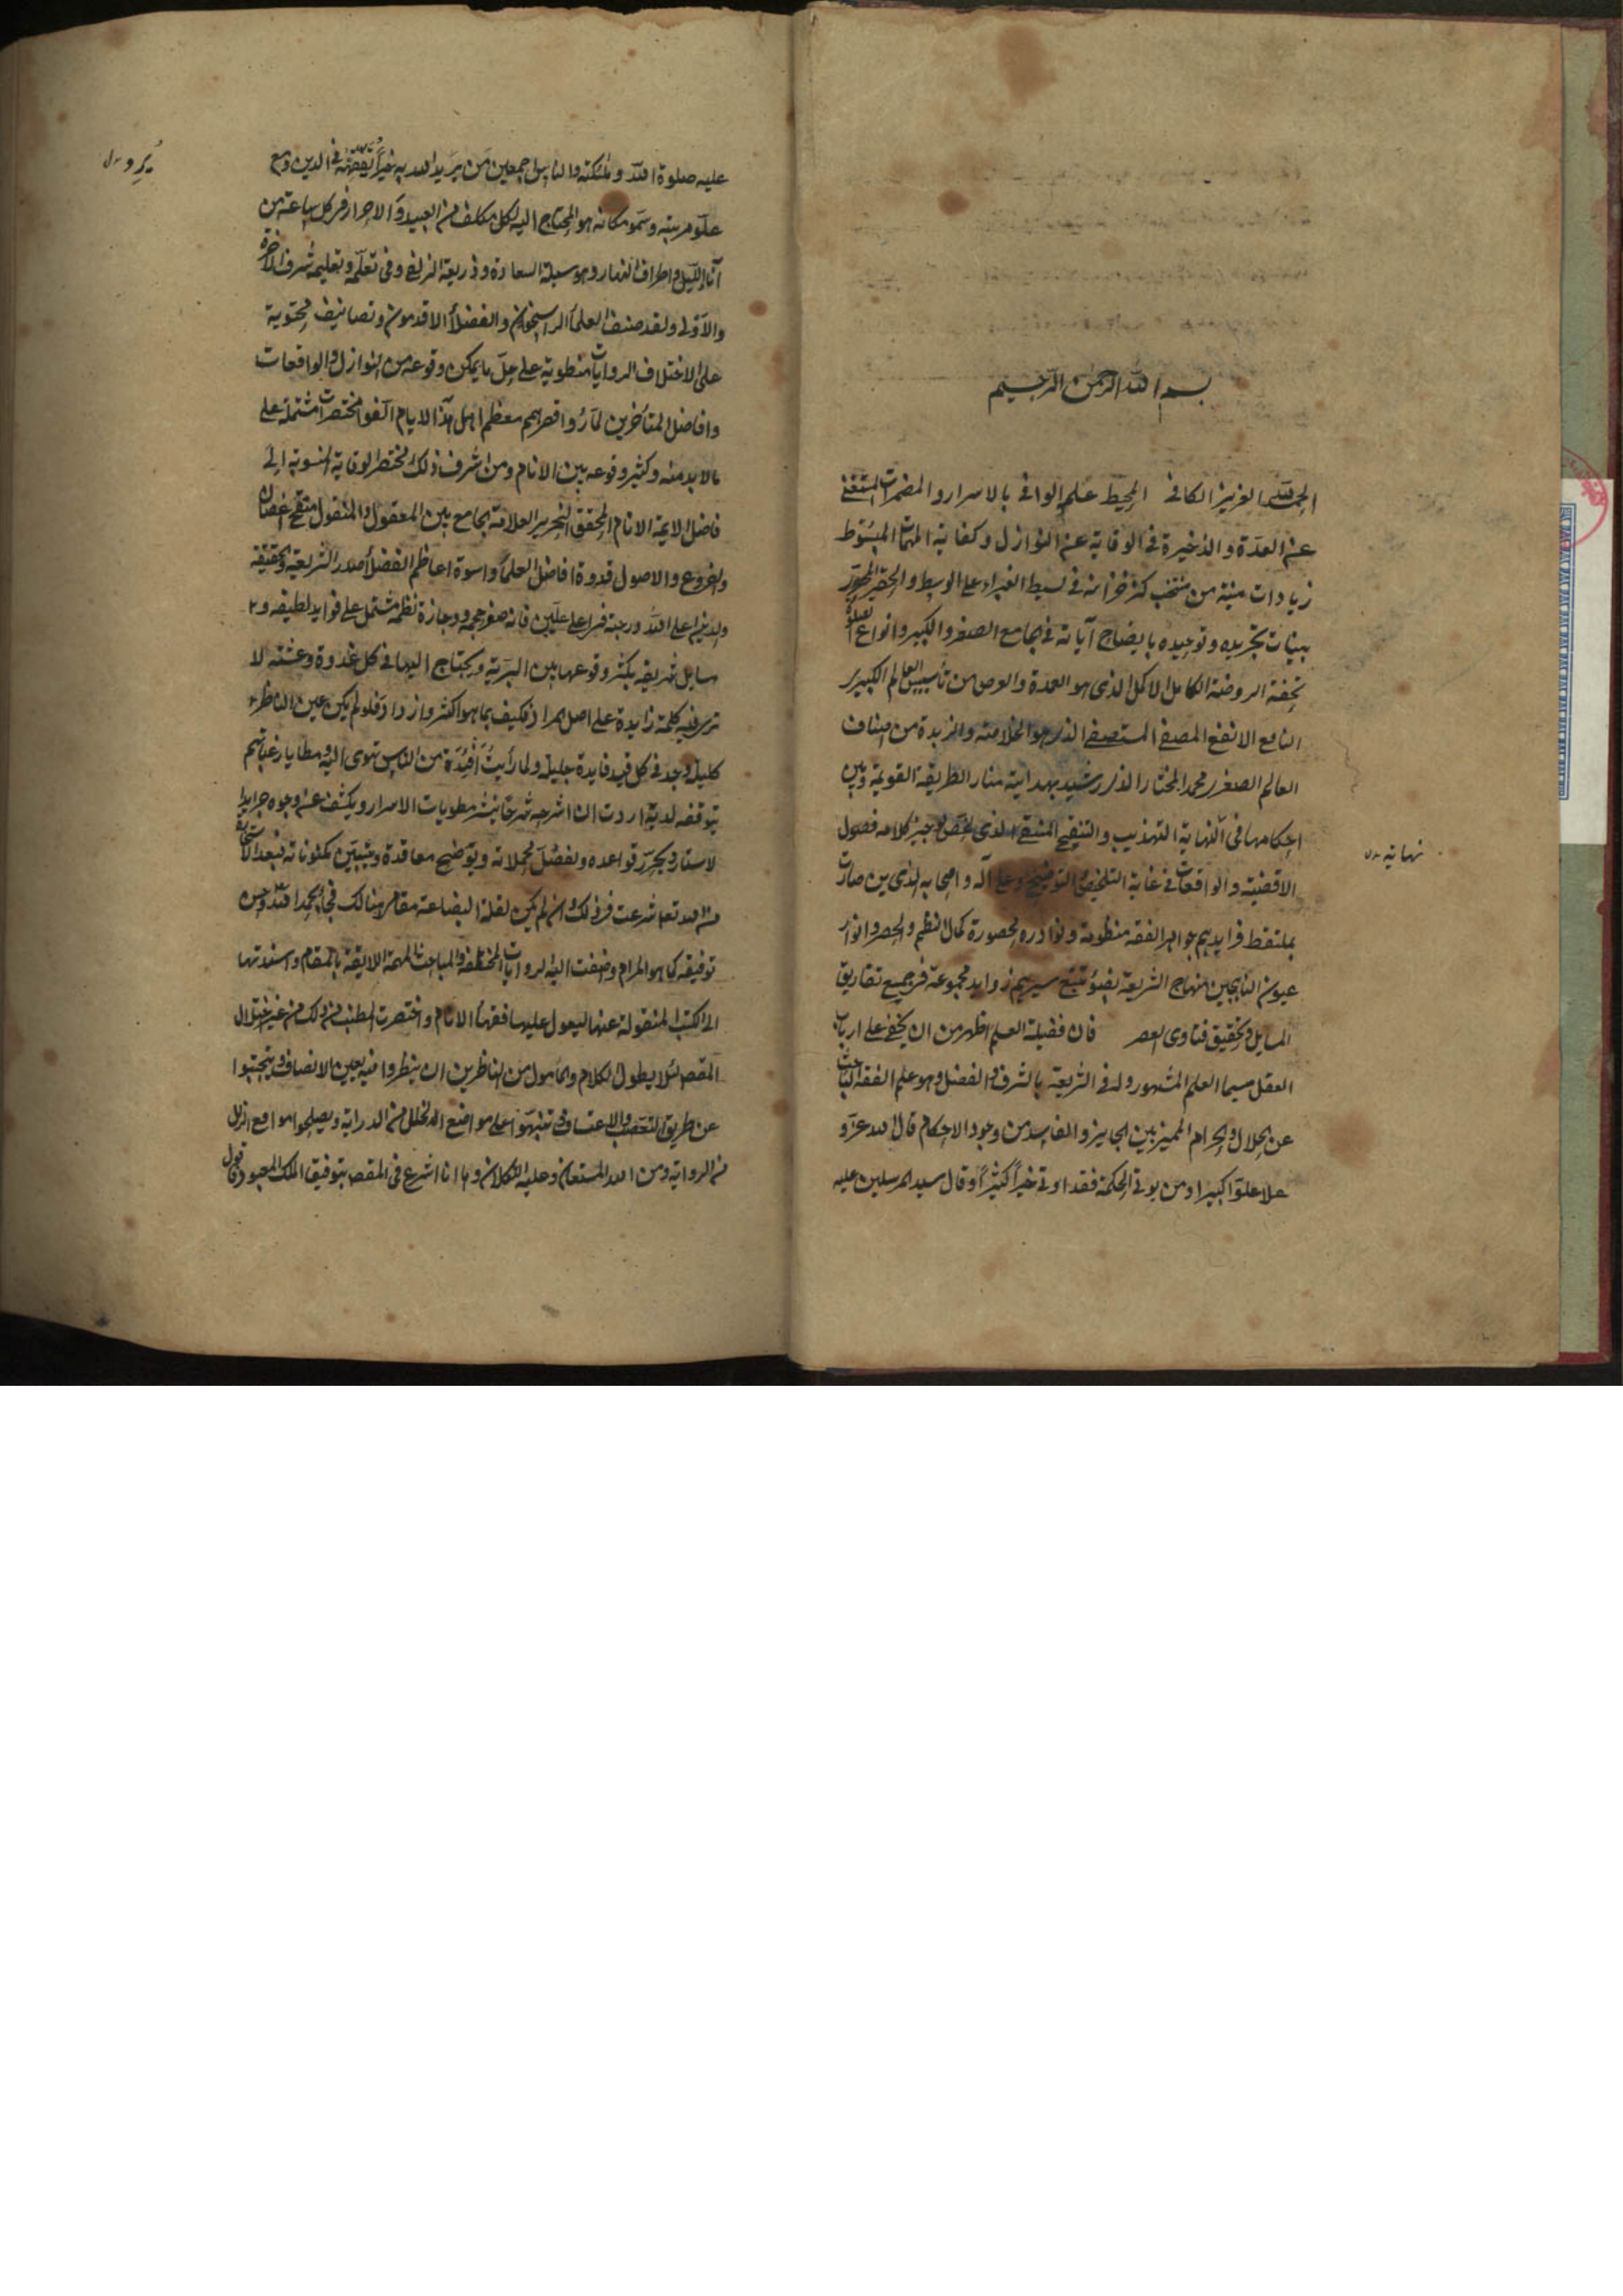 بسم الله الرحمن الرحيم
الحمد لله العزيز الكافى المحيط علمه الوافى بالاسرار والمضمرات المستغنى
عن العدة والذخيرة فى الوقاية عن النوازل وكفاية المهمات المبسوط
زيادات منية من منتخب كنز خزانة فى بسيط الغبراء على الوسيط والحقير المطهر
ببينات تجريده وتوحيده بايضاح آياته فى الجامع الصغير والكبير وانواع الصلوة
تحفة الروضة الكامل الاكمل الذى هو العمدة والغرض من تأسيس العالم الكبير
النافع الانفع المصفى المستصفى الذى هو الخلاصة والزبدة من اصناف
العالم الصغير محمد المختار الذى رشيد بهداية منار الطريقة القويمة وبين
احكامها فى النهاية التهذيب والتنقيح المنتقى الذى لخص لوجيز كلامه فصول
نهاية
الاقضية والواقعات فى غاية التلخيص والتوضيح وعلى آله واصحابه الذين صارت
بملتقط فرايدهم جواهر الفقه منظومة ونوادره المحصورة كمال النظم والحصر وانوار
عيون الناهجين منهاج الشريعة بضوء تتبع سيرهم زوايد مجموعة فى جميع تفاريق
المسايل وتحقيق فتاوى العصر فان فضيلة العلم اظهر من ان يخفى على ارباب
العقل سيما العلم المشهور وله فى الشريعة بالشرف والفضل وهو علم الفقه الباحث
عن الحلال والحرام المميز بين الجايز والفاسد من وجود الاحكام قال الله عز و
علا علوا كبيرا ومن يوتى الحكمة فقد اوتى خيرا كثيرا وقال سيد المرسلين عليه
عليه صلوة الله وملئكته والناس اجمعين من يريد الله به خيرا يفقهه فى الدين ومع
علو مرتبته وسمو مكانه هو المحتاج اليه لكل مكلف من العبيد والاحرار فى كل ساعة من
آناء الليل واطراف النهار وهو وسيلة السعادة وذريعة الزلفى وفى تعلمه وتعليمه شرف الاخرة
والاولى ولقد صنف العلماء الراسخون والفضلاء الاقدمون وتصانيف محتوية
على الاختلاف الروايات منطوية على جل ما يمكن وقوعه من النوازل والواقعات
وافاضل المتأخرين لما رؤا قصر همم معظم اهل هذا الايام الفوا مختصرات مشتملة على
مالابد منه وكثير وقوعه بين الانام ومن اشرف ذلك المختصر الوقاية المنسوبة الى
فاضل الايمة الانام المحقق النحرير العلامة الجامع بين المعقول والمنقول منقح اغصان
والفروع والاصول قدوة افاضل العلماء واسوة اعاظم الفضلاء صدر الشريعة والحقيقة
والدين اعلى الله درجته فى اعلى عليين فانه صغر حجمه ووجازة نظمه مشتمل على فوايد لطيفة و
مسايل شريفة يكثر وقوعها بين البرية ويحتاج اليها فى كل غدوة وعشية لا
ترى فيه كلمة زايدة على اصل المراد فكيف بما هو اكثر وازداد فلو لم يكن عين الناظر
كليل وجد فى كل قيد فايدة جليلة ولما رأيت افئدة من الناس تهوى اليه ومطايا رغباتهم
متوقفة لديه اردت ان اشرحه شرحا يبث مطويات الاسرار ويكشف عن وجوه خرايدا
لاستار ويحرر قواعده ويفصل مجملاته ويوضح معاقدة ويتبين مكنوناته فبعد الاستخارة
من الله تعا شرعت فى ذلك وان لم يكن لقلة البضاعة مقامى هنالك فجاء بحمد الله وحسن
توفيقه كما هو المرام وضفت اليه الروايات المختلفة والمباحث المهمة اللايقة بالمقام واسندتها
الى الكتب المنقولة عنها ليعول عليها فقهاء الانام واختصرت المطنب من ذلك من غير اختلال
المقصد لئلا يطول الكلام والمامول من الناظرين ان ينظروا فيه بعين الانصاف ويجتنبوا
عن طريق التعصب والاعتساف وتنبهوا على مواضع الخلل من الدراية ويصلحوا مواقع الزلل
من الرواية ومن الله المستعان وعليه التكلان وها انا اشرع فى المقصد بتوفيق الملك المعبود فاقول